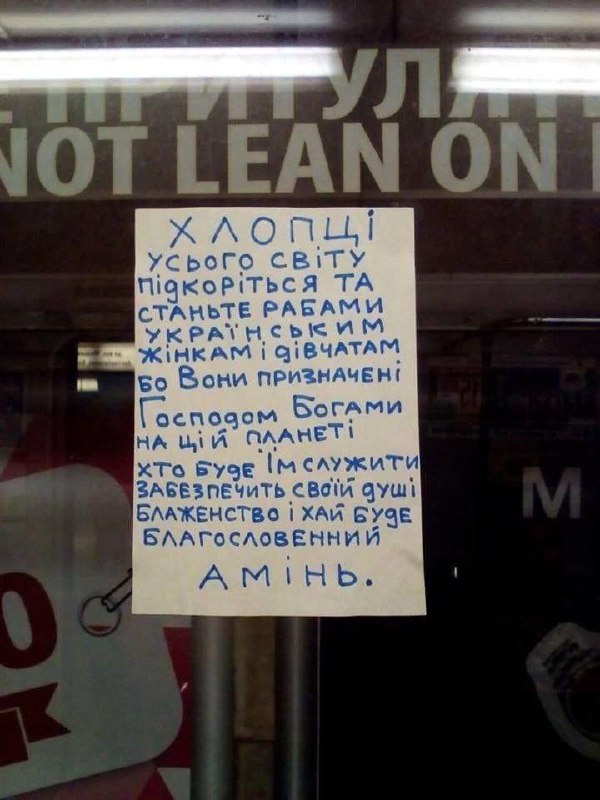 ПРИТУЛЯТ
NOT LEAN ON
ХЛОПЦІ
УСЬОГО СВІТУ
ПІДКОРІТЬСЯ ТА
СТАНЬТЕ РАБАМИ
УКРАЇНСЬКИМ
ЖІНКАМ І ДІВЧАТАМ
БО ВОНИ ПРИЗНАЧЕНІ
ГОСПОДОМ БОГАМИ
НА ЦІЙ ПЛАНЕТІ
ХТО БУДЕ ЇМ СЛУЖИТИ
ЗАБЕЗПЕЧИТЬ СВОЇЙ ДУШІ
БЛАЖЕНСТВО І ХАЙ БУДЕ
БЛАГОСЛОВЕННИЙ
АМІНЬ.
М
0